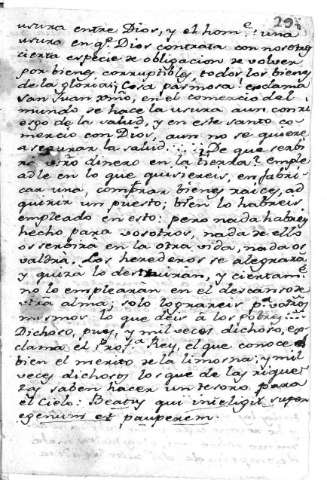 291
usura entre Dios, y el homᵉ: una
usura en qᵉ. Dios contrata con nosotros
cierta especie de obligacion de volver
por bienes corruptibles, todos los bienes
de la gloria; Cosa pasmosa! esclama
San Juan xmo, en el comercio del
mundo se hace la usura, aun con ri
esgo de la salud, y en este santo co
mercio con Dios, aun no se quiere
asegurar la salud..... De que servi
ra vro dinero en la tierra? emple
adle en lo que quisiereis, en fabri
car una, comprar bienes raices, ad
quirir un puesto; bien lo habreis
empleado en esto: pero nada habreis
hecho para vosotros, nada de ello
os servira en la otra vida, nada os
valdra. Los herederos se alegraran
y quiza lo destruiran, y ciertamᵉ
no lo emplearan en el descanso de
vtra alma; solo lograreis pᵃ vosotros
mismos lo que deis à los pobres....
Dichoso, pues, y mil veces dichoso, es
clama el Profᵗᵃ Rey, el que conoce
bien el merito de la limosna; y mil
veces dichosos los que de las rique
zas saben hacer un tesoro para
el Cielo: Beatus qui inteligit super
egenum et pauperem.